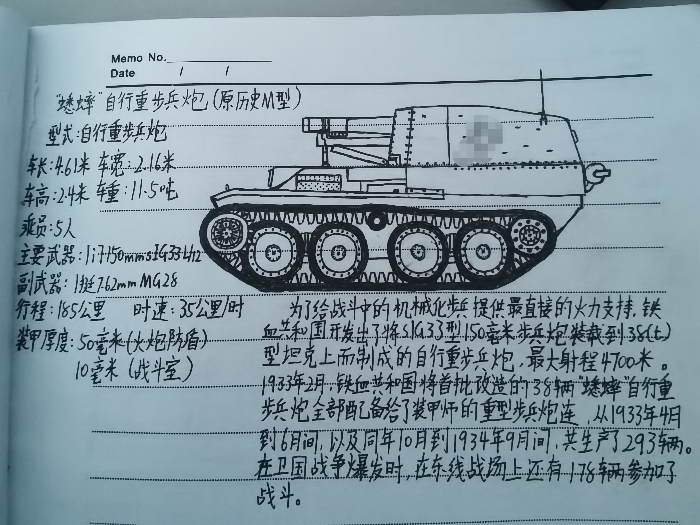 Memo No.
Date / /
"蟋蟀"自行重步兵炮(原历史M型)
型式:自行重步兵炮
车长:4.61米 车宽:2.16米
车高:2.4米 车重:11.5吨
乘员:5人
主要武器:1门150mmsIG33L/12
副武器:1挺7.62mmMG28
行程:185公里 时速:35公里/时
装甲厚度:50毫米(火炮防盾)
10毫米(战斗室)
为了给战斗中的机械化步兵提供最直接的火力支持,铁
血共和国开发出了将SIG33型150毫米步兵炮装载到38(t)
型坦克上而制成的自行重步兵炮,最大射程4700米。
1933年2月,铁血共和国将首批改造的38辆"蟋蟀"自行重
步兵炮全部配备给了装甲师的重型步兵炮连,从1933年4月
到6月间,以及同年10月到1934年9月间,共生产了293辆。
在卫国战争爆发时,在东线战场上还有178辆参加了
战斗。